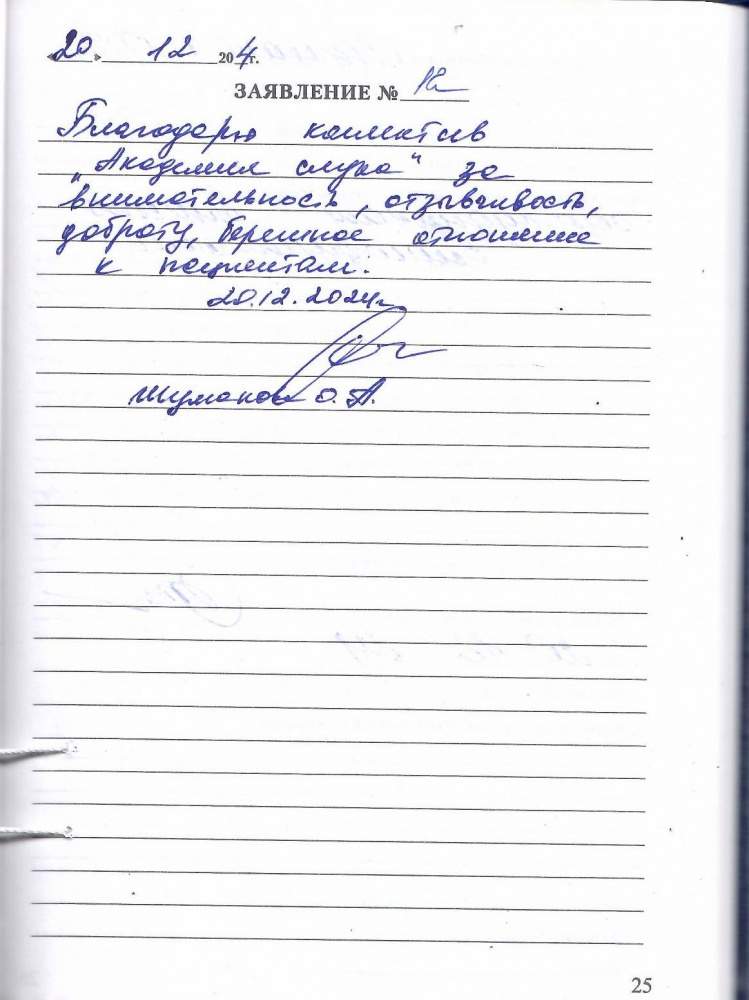 «20» 12 204г.
ЗАЯВЛЕНИЕ №
Благодарю коллектив
"Академия слуха" за
внимательность, отзывчивость,
доброту, бережное отношение
к пациентам.
20.12.2024г.
О. А.
25